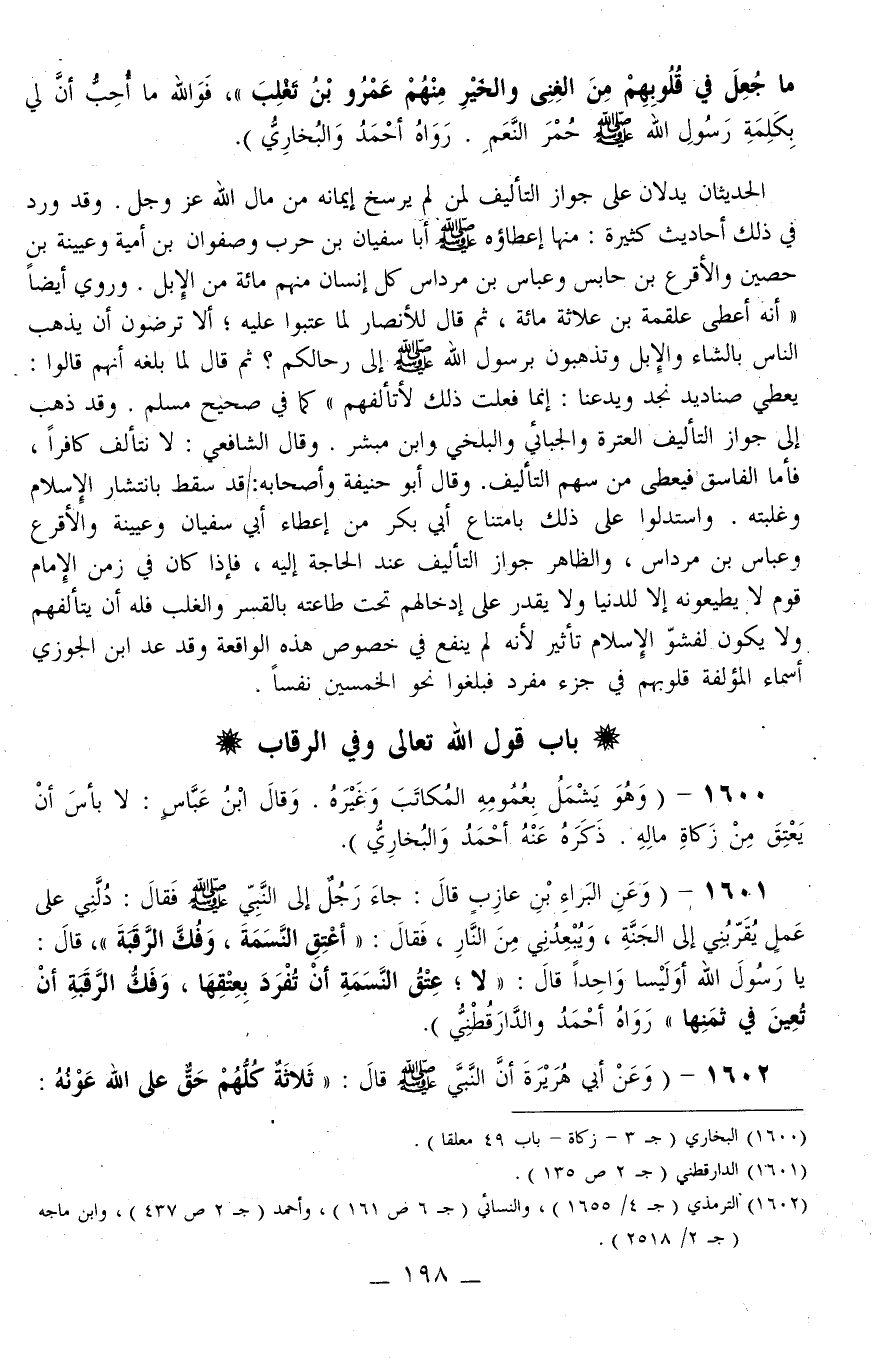 ما جُعِلَ في قُلُوبِهِمْ مِنَ الغِنِى والخَيْرِ مِنْهُمْ عَمْرُو بْنُ تَغْلِبَ »، فَوَالله ما أُحِبُّ أنَّ لي
بِكَلِمَةِ رَسُولِ الله ﷺ حُمْرَ النَّعَمِ . رَوَاهُ أحْمَدُ وَالبُخارِيُّ ).
الحديثان يدلان على جواز التأليف لمن لم يرسخ إيمانه من مال الله عز وجل . وقد ورد
في ذلك أحاديث كثيرة : منها إعطاؤه ﷺ أبا سفيان بن حرب وصفوان بن أمية وعيينة بن
حصين والأقرع بن حابس وعباس بن مرداس كل إنسان منهم مائة من الإبل . وروي أيضاً
« أنه أعطى علقمة بن علاثة مائة ، ثم قال للأنصار لما عتبوا عليه ؛ ألا ترضون أن يذهب
الناس بالشاء والإبل وتذهبون برسول الله ﷺ إلى رحالكم ؟ ثم قال لما بلغه أنهم قالوا :
يعطي صناديد نجد ويدعنا : إنما فعلت ذلك لأتألفهم » كما في صحيح مسلم . وقد ذهب
إلى جواز التأليف العترة والجبائي والبلخي وابن مبشر . وقال الشافعي : لا نتألف كافراً ،
فأما الفاسق فيعطى من سهم التأليف. وقال أبو حنيفة وأصحابه: قد سقط بانتشار الإسلام
وغلبته . واستدلوا على ذلك بامتناع أبي بكر من إعطاء أبي سفيان وعيينة والأقرع
وعباس بن مرداس ، والظاهر جواز التأليف عند الحاجة إليه ، فإذا كان في زمن الإمام
قوم لا يطيعونه إلا للدنيا ولا يقدر على إدخالهم تحت طاعته بالقسر والغلب فله أن يتألفهم
ولا يكون لفشوّ الإسلام تأثير لأنه لم ينفع في خصوص هذه الواقعة وقد عد ابن الجوزي
أسماء المؤلفة قلوبهم في جزء مفرد فبلغوا نحو الخمسين نفساً .
باب قول الله تعالى وفي الرقاب
١٦٠٠ - ( وَهُوَ يَشْمَلُ بِعُمُومِهِ المُكاتَبَ وَغَيْرَهُ . وَقالَ ابْنُ عَبَّاسٍ : لا بأسَ أنْ
يَعْتِقَ مِنْ زَكاةِ مالِهِ . ذَكَرَهُ عَنْهُ أحْمَدُ وَالبُخارِيُّ ).
١٦٠١ - ( وَعَنِ البَراءِ بْنِ عازِبٍ قالَ : جاءَ رَجُلٌ إلى النَّبِيّ ﷺ فَقالَ : دُلَّنِي على
عَملٍ يُقَرّبُنِي إلى الجَنَّةِ ، وَيُبْعِدُنِي مِنَ النَّارِ ، فَقالَ : « أعْتِقِ النَّسَمَةَ ، وَفُكَّ الرَّقَبَةَ »، قالَ :
يا رَسُولَ الله أوَلَيْسا وَاحِداً قالَ : « لا ؛ عِتْقُ النَّسَمَةِ أنْ تُفْرَدَ بِعِتْقِها ، وَفَكُّ الرَّقَبَةِ أنْ
تُعِينَ في ثمَنِها » رَوَاهُ أحْمَدُ والدَّارَقُطْنِيُّ ).
١٦٠٢ - ( وَعَنْ أبي هُرَيْرَةَ أنَّ النَّبيَّ ﷺ قالَ : « ثَلاثَةٌ كُلُّهُمْ حَقٌّ على الله عَوْنُهُ :
(١٦٠٠) البخاري ( جـ ٣ - زكاة - باب ٤٩ معلقا ) .
(١٦٠١) الدارقطني ( جـ ٢ ص ١٣٥ ) .
(١٦٠٢) الترمذي ( جـ ٤/ ١٦٥٥ ) ، والنسائي ( جـ ٦ ص ١٦١ ) ، وأحمد ( جـ ٢ ص ٤٣٧ ) ، وابن ماجه
( جـ ٢/ ٢٥١٨ ) .
— ١٩٨ —